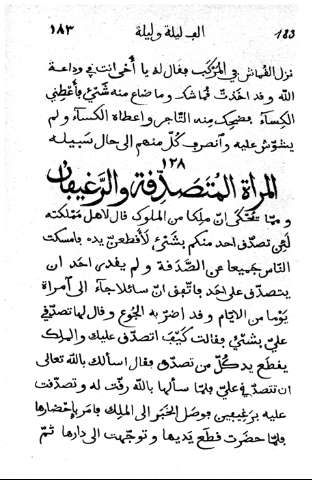 ١٨٣ الف ليلة وليلة 183
نزل القماش في المركب فقال له يا أخى انت في وداعة
الله وقد اخذت قماشك وما ضاع منه شئ فأعطني
الكساء فضحك منه التاجر واعطاه الكساء ولم
يشوش عليه وانصرف كلّ منهم الى حال سبيله
١٢٨
المراة المتصدّقة والرغيفان
وممّا يحكى انّ ملكا من الملوك قال لاهل مملكته
لئن تصدّق احد منكم بشئ لأقطعنّ يده فامسكت
الناس جميعا عن الصدقة ولم يقدر احد ان
يتصدق على احد فاتّفق انّ سائلا جاء الى امراة
يوما من الايام وقد اضرّ به الجوع وقال لها تصدّقي
عليّ بشئ فقالت كيف اتصدّق عليك والملك
يقطع يد كلّ من تصدّق فقال اسالك بالله تعالى
ان تتصدّقي عليّ فلمّا سالها بالله رقّت له وتصدّقت
عليه برغيفين فوصل الخبر الى الملك فامر بإحضارها
فلمّا حضرت قطع يديها وتوجّهت الى دارها ثمّ